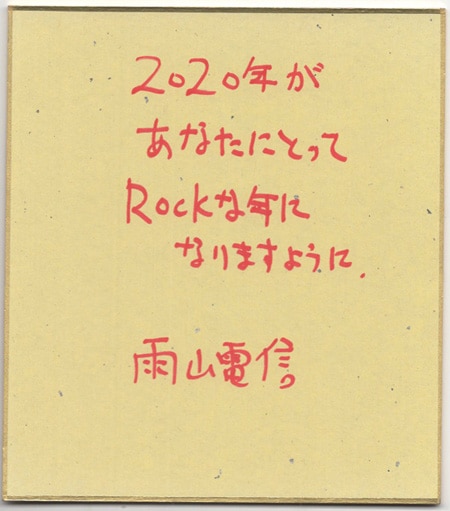 2020年が
あなたにとって
Rockな年に
なりますように.
雨山電信